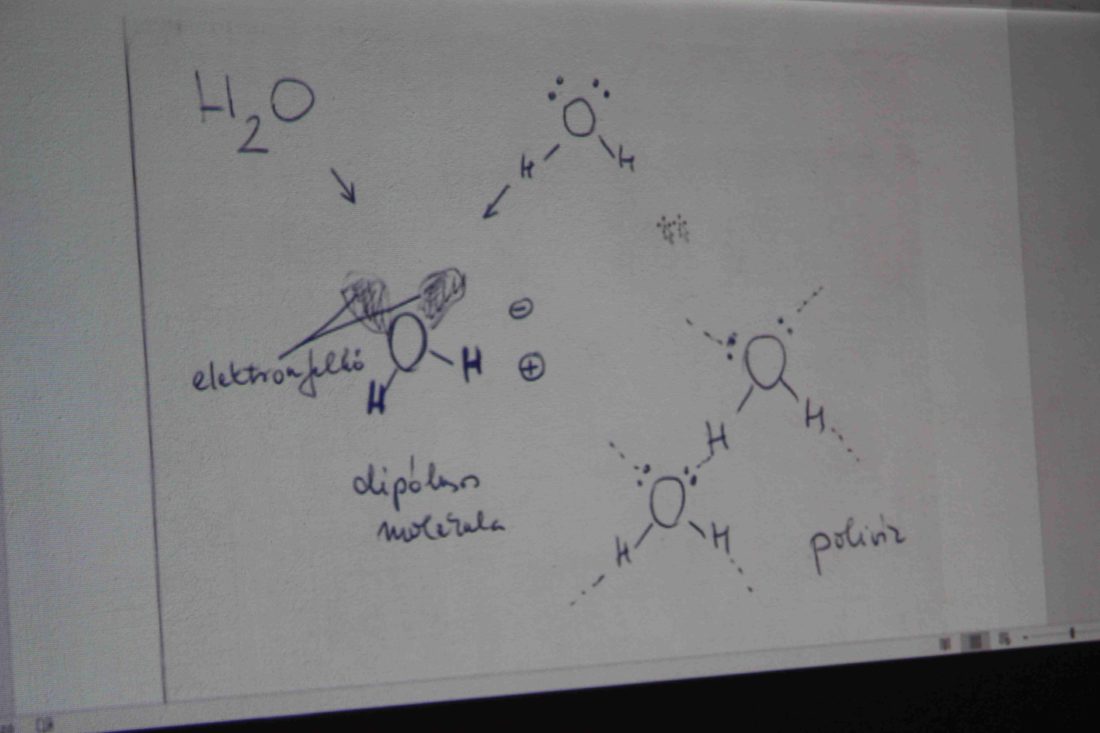 H2O
O
H H
elektronfelhő
O
H
H
⊖
⊕
dipólusos
molekula
O
H
H
O
H
H
polivíz